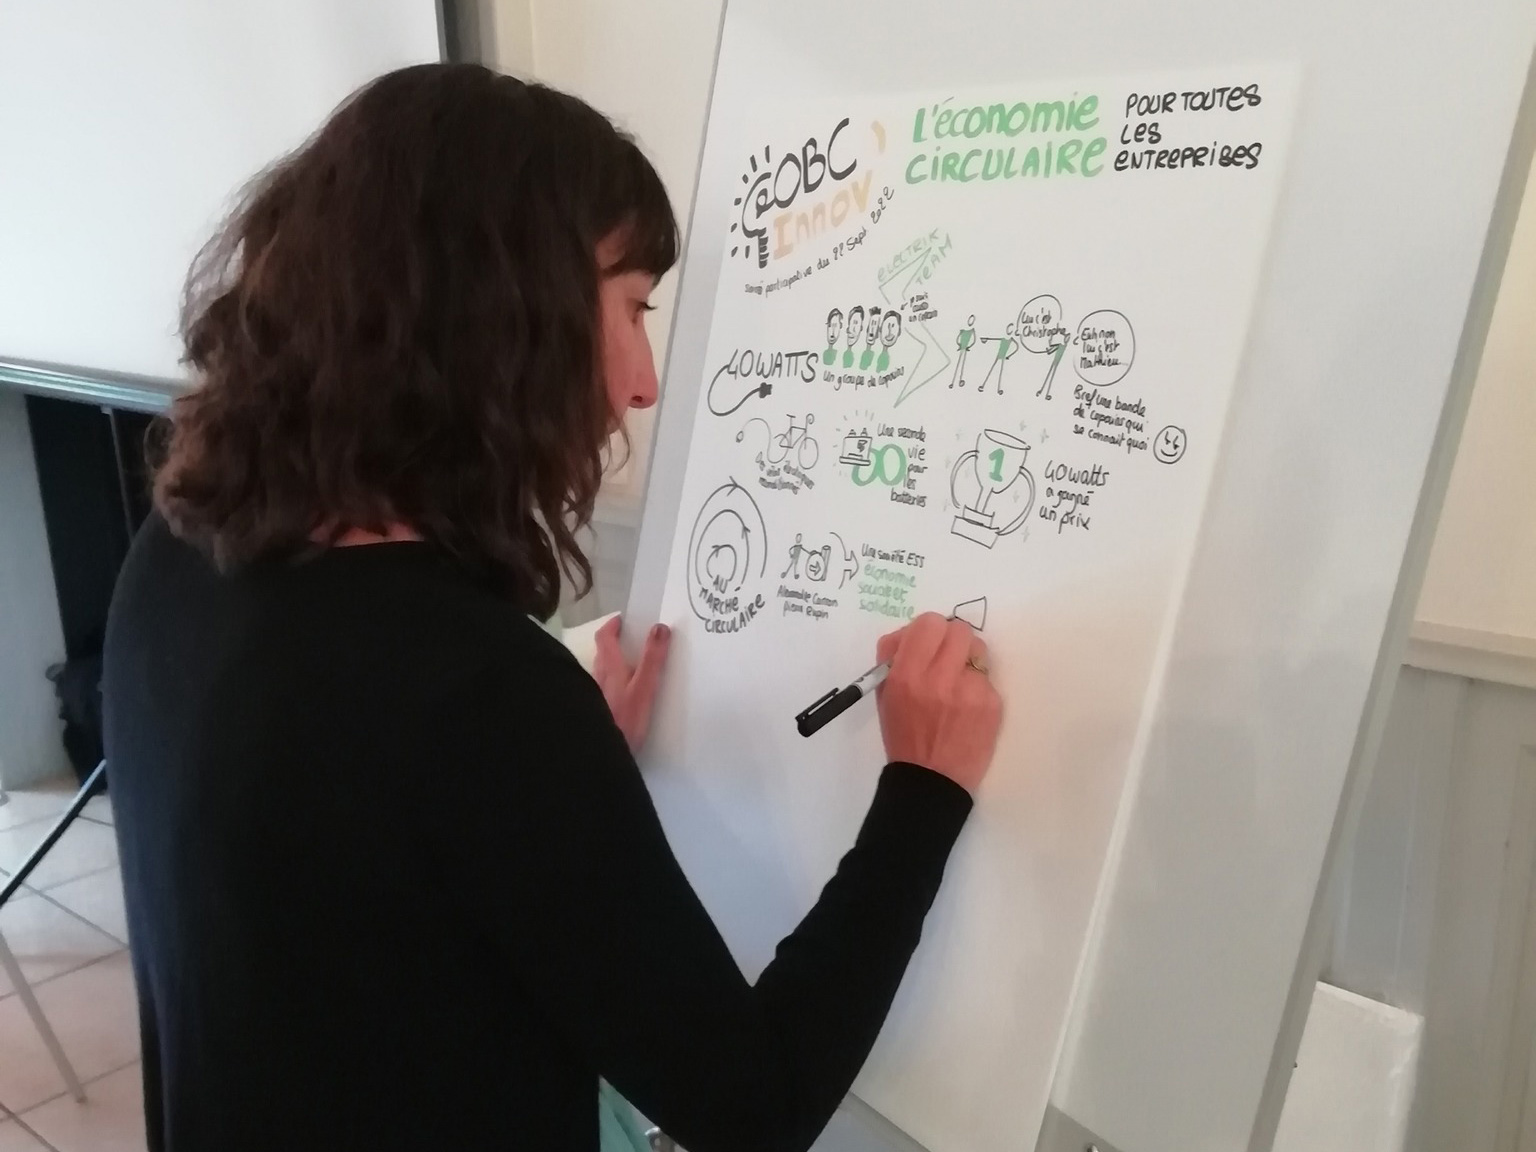 OBC
Innov'
Soirée participative du 22 Sept 2022
L'économie
circulaire
pour toutes
les
entreprises
electrik
team
40WATTS
un groupe de copains
Lui c'est
Christophe
Euh non
lui c'est
Matthieu...
Bref une bande
de copains qui
se connait quoi
Une seconde
vie
pour
les
batteries
1
40watts
a gagné
un prix
AU
MARCHÉ
CIRCULAIRE
Une société ESS
économie
sociale et
solidaire